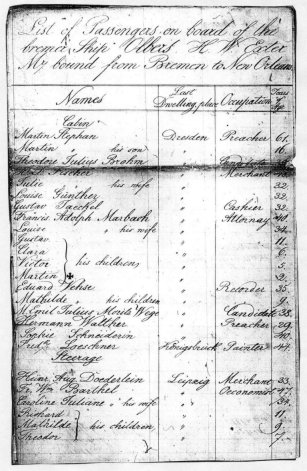 List of Passengers on board of the
bremer Ship Olbers H. W. Exter
Mr bound from Bremen to New Orleans
Names Last Dwelling place Occupation Years Age
Cabin
Martin Stephan Dresden Preacher 61
Martin his son " 16
Theodore Julius Brohm " Candidate
Fischer " Merchant
Julie his wife " 32
Louise Günther " 32
Gustav Jaeckel " Cashier 32
Francis Adolph Marbach " Attornay 40
Louise his wife " 34
Gustav " 11
Clara " 6
Victor his children "
Martin " 2
Eduard Vehse " Recorder 35
Mathilde his children " 9
Emil Julius Moritz Wege " Candidate 38
Hermann Walther " Preacher 29
Sophie Schneiderin " 40
Loeschner Königsbrück Painter 44
Steerage
Heinr. Aug. Doederlein Leipzig Merchant 33
Barthel " Oeconomist
Caroline Juliane his wife " 34
" 11
Mathilde his children " 9
Theodor " 7